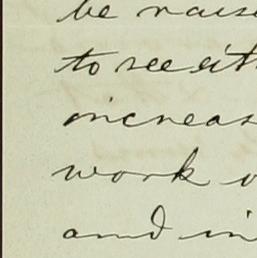 be raise
to see eith
increas
work o
and in